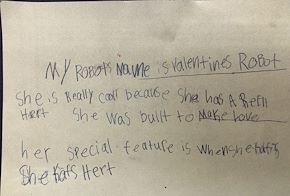 My ROBOTS Name is valentines Robot
She is Really cool because she has A Reell
Hert She was built to Make love
her special feature is when she
She Hert